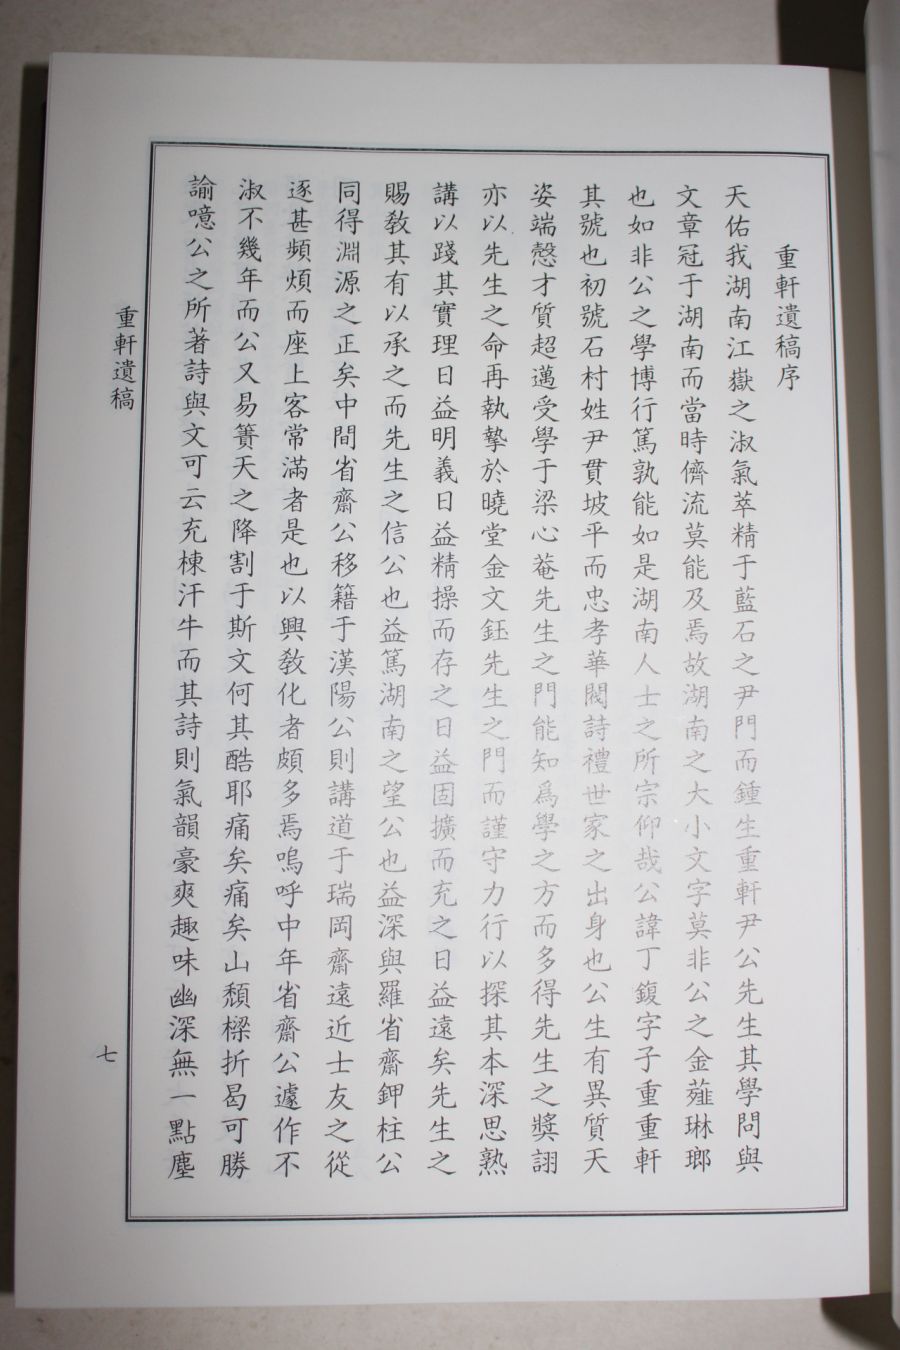 重軒遺稿序
天佑我湖南江嶽之淑氣萃精于藍石之尹門而鍾生重軒尹公先生其學問與
文章冠于湖南而當時儕流莫能及焉故湖南之大小文字莫非公之金薤琳瑯
也如非公之學博行篤孰能如是湖南人士之所宗仰哉公諱丁鍑字子重重軒
其號也初號石村姓尹貫坡平而忠孝華閥詩禮世家之出身也公生有異質天
姿端慤才質超邁受學于梁心菴先生之門能知爲學之方而多得先生之獎詡
亦以先生之命再執摯於曉堂金文鈺先生之門而謹守力行以探其本深思熟
講以踐其實理日益明義日益精操而存之日益固擴而充之日益遠矣先生之
賜敎其有以承之而先生之信公也益篤湖南之望公也益深與羅省齋鉀柱公
同得淵源之正矣中間省齋公移籍于漢陽公則講道于瑞岡齋遠近士友之從
逐甚頻煩而座上客常滿者是也以興敎化者頗多焉嗚呼中年省齋公遽作不
淑不幾年而公又易簀天之降割于斯文何其酷耶痛矣痛矣山頹樑折曷可勝
諭噫公之所著詩與文可云充棟汗牛而其詩則氣韻豪爽趣味幽深無一點塵
重軒遺稿
七